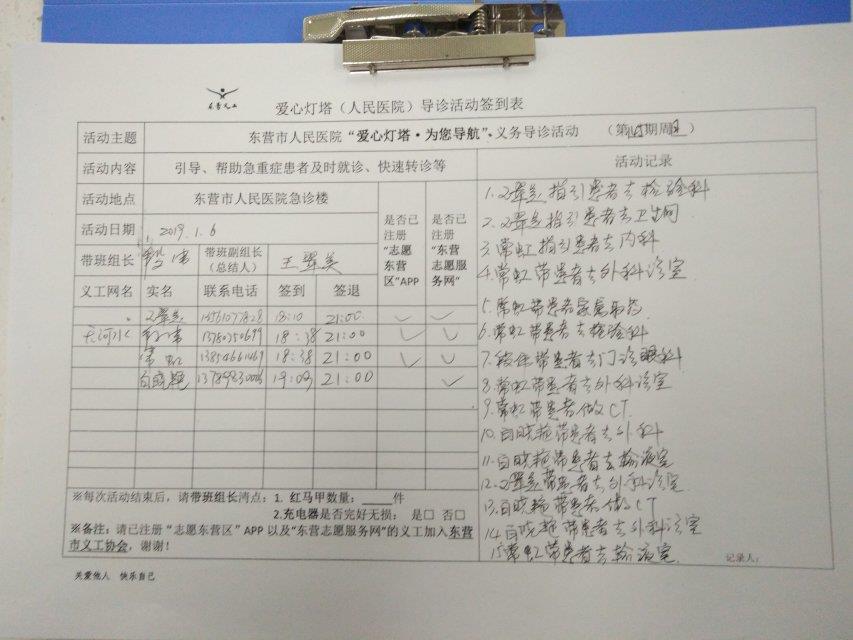 东营义工
爱心灯塔（人民医院）导诊活动签到表
活动主题 东营市人民医院“爱心灯塔·为您导航”，义务导诊活动 （第 期周日）
活动内容 引导、帮助急重症患者及时就诊、快速转诊等 活动记录
活动地点 东营市人民医院急诊楼
活动日期 2019.1.6
是否已注册“志愿东营区”APP
是否已“东营志愿服务网”
带班组长 带班副组长（总结人） 王翠美
义工网名 实名 联系电话 签到 签退
王翠美 18:10 21:00
天河水 18:38 21:00
常虹 18:38 21:00
白晓艳 19:09 21:00
※每次活动结束后，请带班组长清点：1. 红马甲数量：____件
2.充电器是否完好无损： 是□ 否□
※备注：请已注册“志愿东营区”APP 以及“东营志愿服务网”的义工加入东营
市义工协会，谢谢！
1.王翠美指引患者去检验科
2.王翠美指引患者去卫生间
3.常虹指引患者去内科
4.常虹带患者去外科诊室
5.常虹带患者家属取药
6.常虹带患者去检验科
7. 带患者去门诊眼科
8.常虹带患者去外科诊室
9.常虹带患者做CT.
10.白晓艳带患者去外科
11.白晓艳带患者去输液室
12.王翠美带患者去外科诊室
13.白晓艳带患者做CT
14.白晓艳带患者去外科诊室
15.常虹带患者去输液室.
记录人：
关爱他人 快乐自己